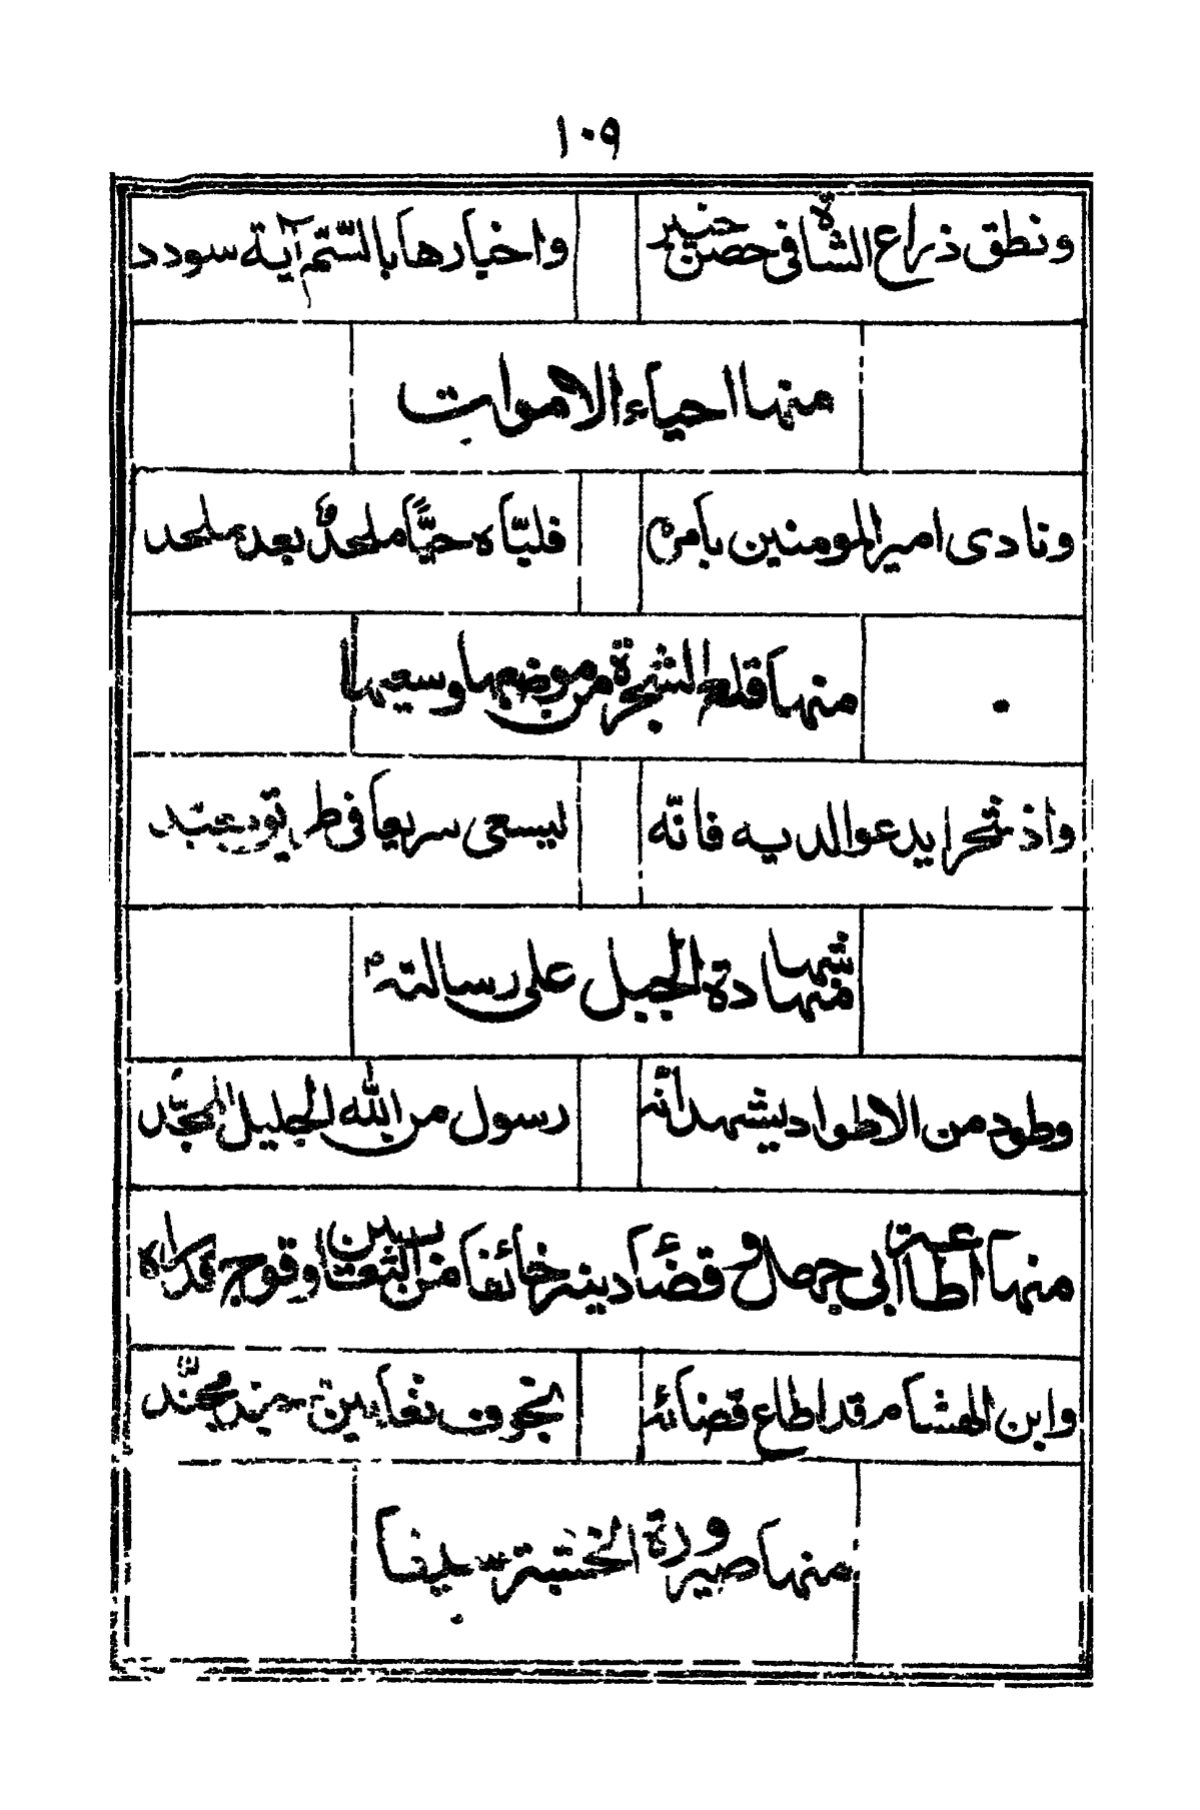 ١٠٩
ونطق ذراع الشاة فى حصن خيبر واخبارها بالسّم آية سودد
منها احياء الاموات
ونادى امير المومنين بامره فلبّاه حيًّا ملحدٌ بعد ملحد
منها قلع الشجرة من موضعها وسعيها
واذ شجرا يدعو الديه فانّه ليسعى سريعا فى طريق معبّد
منها شهادة الجبل على رسالته
وطود من الاطواد ليشهد أنّه رسول من الله الجليل الممجّد
منها اطاعة ابى جهل وقضاء دينه خائفا من الثعبانين وقوجه قد راه
وابن الهشام قد اطاع قضائه بخوف ثعابين محمّد
منها صيرورة الخشبة سيفا